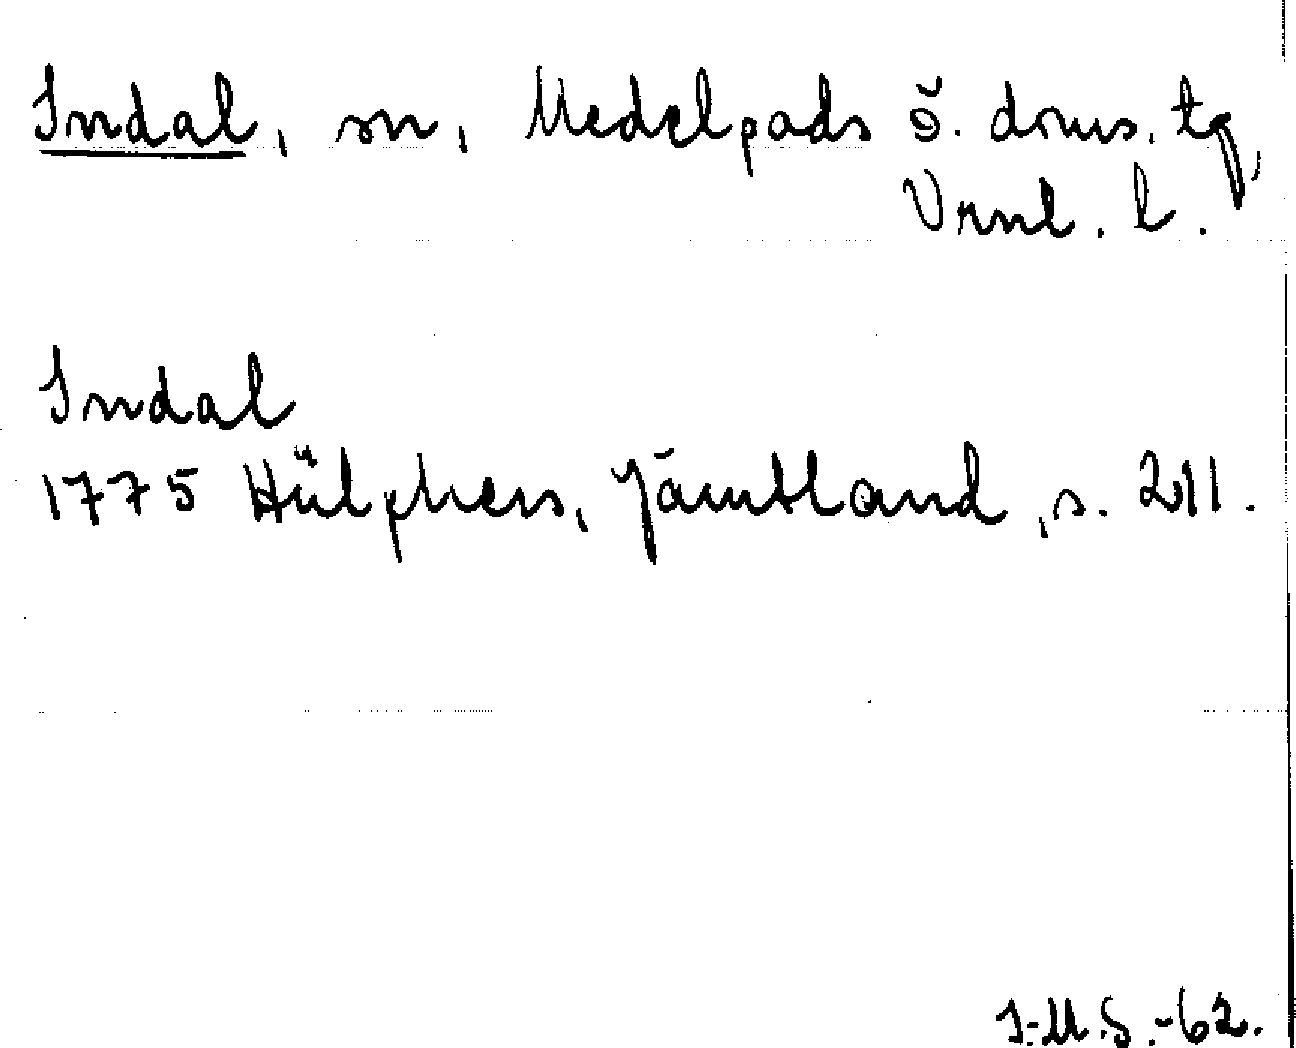 Indal, sn, Medelpads ö. doms. tg,
Vrnl. l.
Indal
1775 Hülphers, Jämtland, s. 211.
I-M.S.-62.